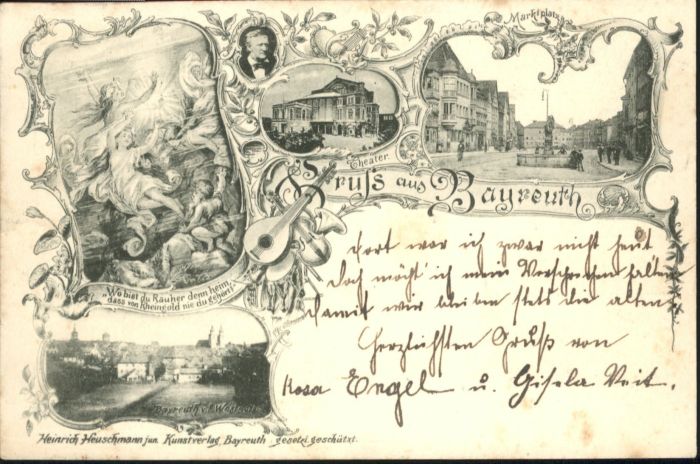 Marktplatz
Theater.
Gruss aus Bayreuth
„Wo bist du Räuber denn heim,
dass von Rheingold nie du gehört"
Bayreuth v.
dort war ich zwar nicht heut
doch möcht' ich mein Versprechen halten
damit wir bleiben stets die alten
Herzlichsten Gruß von
Rosa Engel u. Gisela Veit.
Heinrich Heuschmann jun. Kunstverlag, Bayreuth gesetzl. geschützt.